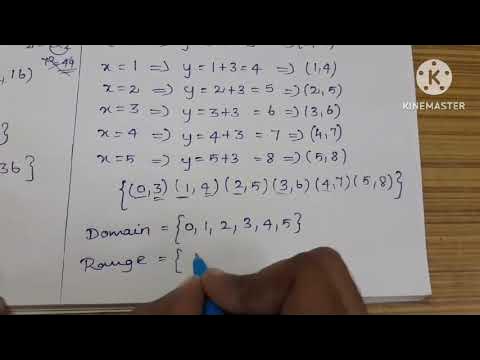 x = 1 => y = 1+3 = 4 => (1,4)
x = 2 => y = 2+3 = 5 => (2,5)
x = 3 => y = 3+3 = 6 => (3,6)
x = 4 => y = 4+3 = 7 => (4,7)
x = 5 => y = 5+3 = 8 => (5,8)
{(0,3) (1,4) (2,5) (3,6) (4,7) (5,8)}
Domain = {0, 1, 2, 3, 4, 5}
Range = {
, 16)
}
36}
KINEMASTER